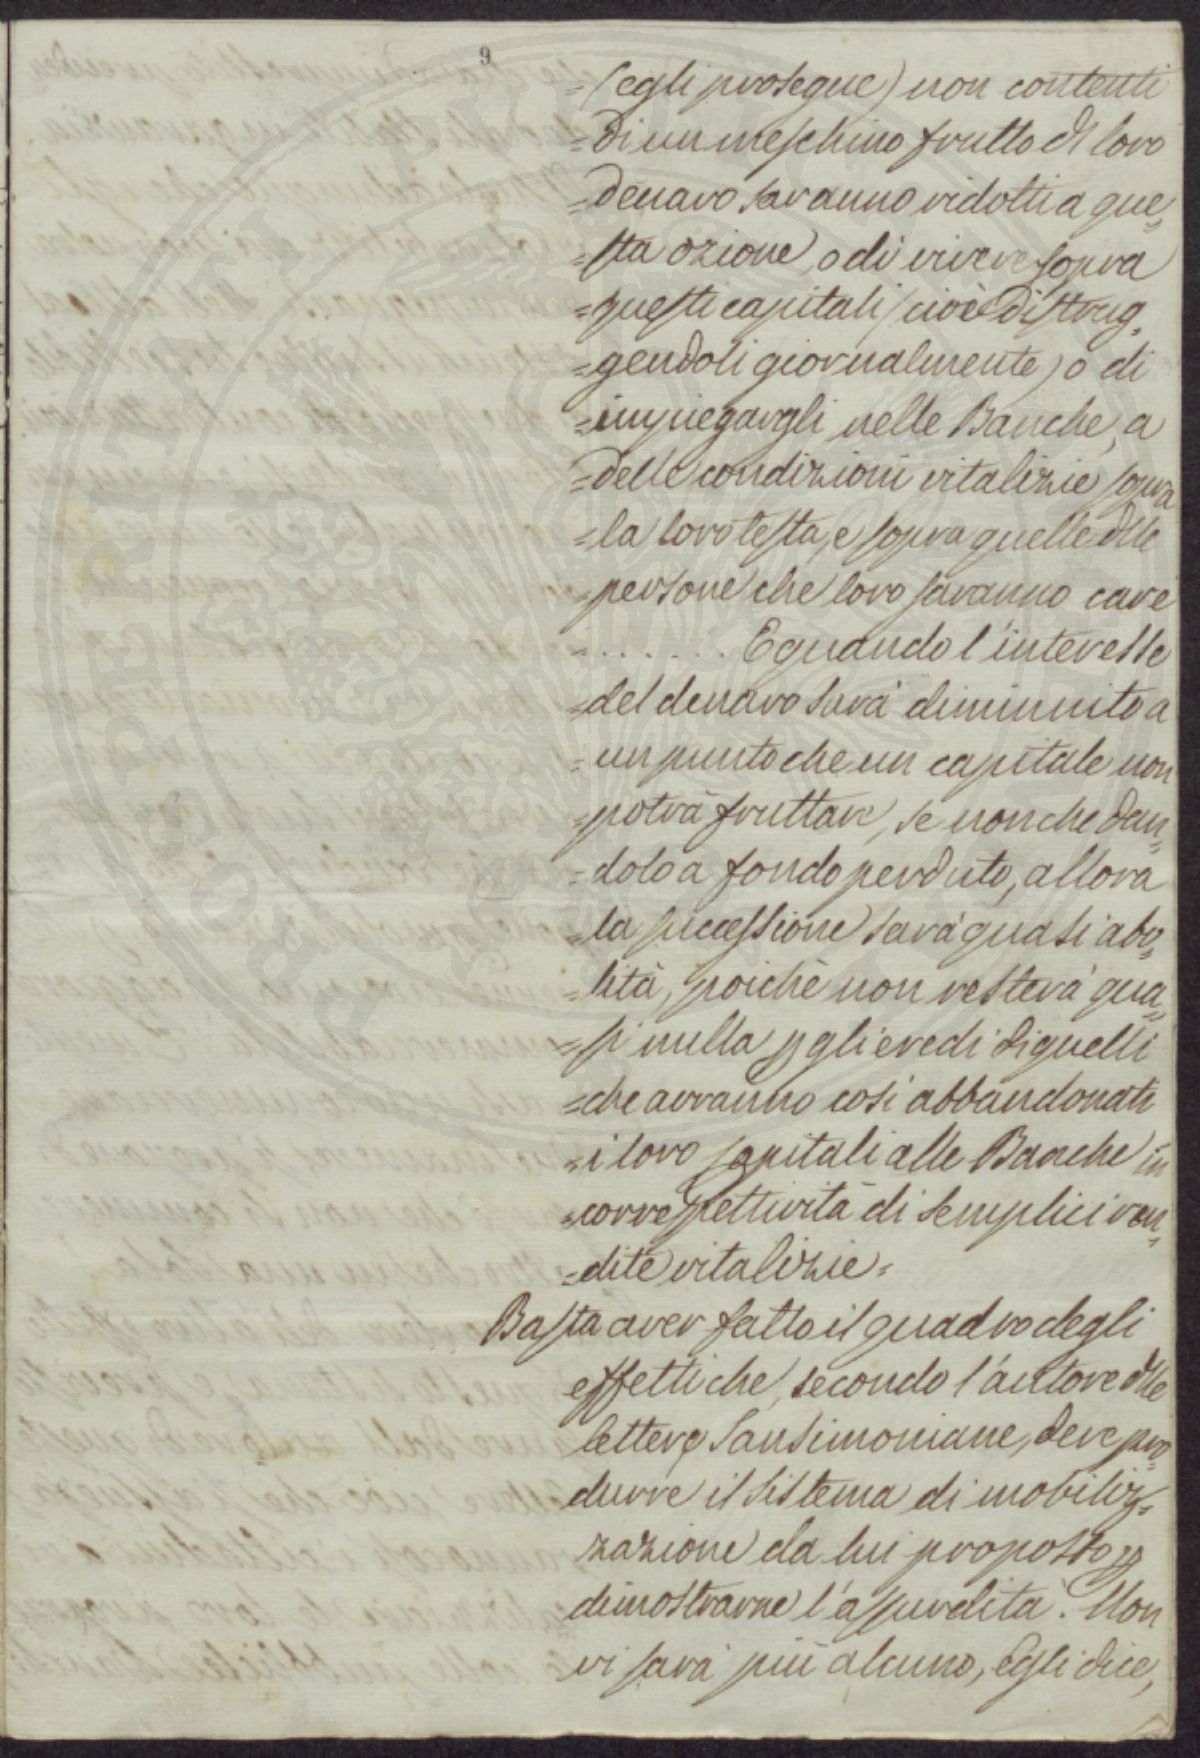 9
=(egli prosegue) non contenti
=di un meschino frutto dl loro
=denaro saranno ridotti a que=
=sta ozione, o di vivere sopra
=questi capitali (cioè distrug=
=gendoli giornalmente) o di
=impiegargli nelle Banche, a
=delle condizioni vitalizie sopra
=la loro testa, e sopra quelle dlle
=persone che loro saranno care
=....... E quando l'interesse
=del denaro sarà diminuito a
=un punto che un capitale non
=potrà fruttare, se non che dan=
=dolo a fondo perduto, allora
=la successione sarà quasi abo=
=lità, poichè non resterà qua=
=si nulla p gli eredi di quelli
=che avranno così abbandonati
=i loro capitali alle Banche in
=correspettività di semplici ren=
=dite vitalizie=
Basta aver fatto il quadro degli
effetti che, secondo l'autore dlle
lettere Sansimoniane, deve pro=
durre il sistema di mobiliz=
zazione da lui proposto p
dimostrarne l'assurdità. Non
vi sarà più alcuno, Egli dice,
PROSPERITATI AVGVSTI